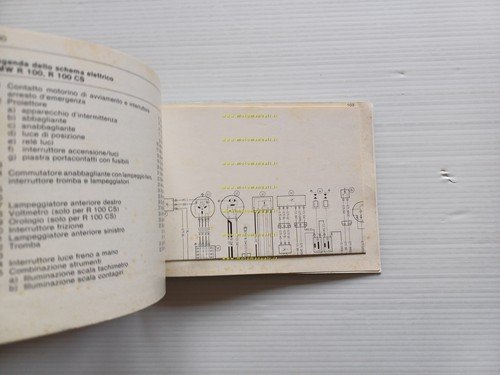 Legenda dello schema elettrico
BMW R 100, R 100 CS
Contatto motorino di avviamento e interruttore
arresto d'emergenza
Proiettore
a) apparecchio d'intermittenza
b) abbagliante
c) anabbagliante
d) luce di posizione
e) relè luci
f) interruttore accensione/luci
g) piastra portacontatti con fusibili
Commutatore anabbagliante con lampeggio fari,
interruttore tromba e lampeggiatori
Lampeggiatore anteriore destro
Voltmetro (solo per R 100 CS)
Orologio (solo per R 100 CS)
Interruttore frizione
Lampeggiatore anteriore sinistro
Tromba
Interruttore luce freno a mano
Combinazione strumenti
a) Illuminazione scala tachimetro
b) Illuminazione scala contagiri
103
www.motomanuali.it
www.motomanuali.it
www.motomanuali.it
www.motomanuali.it
www.motomanuali.it
www.motomanuali.it